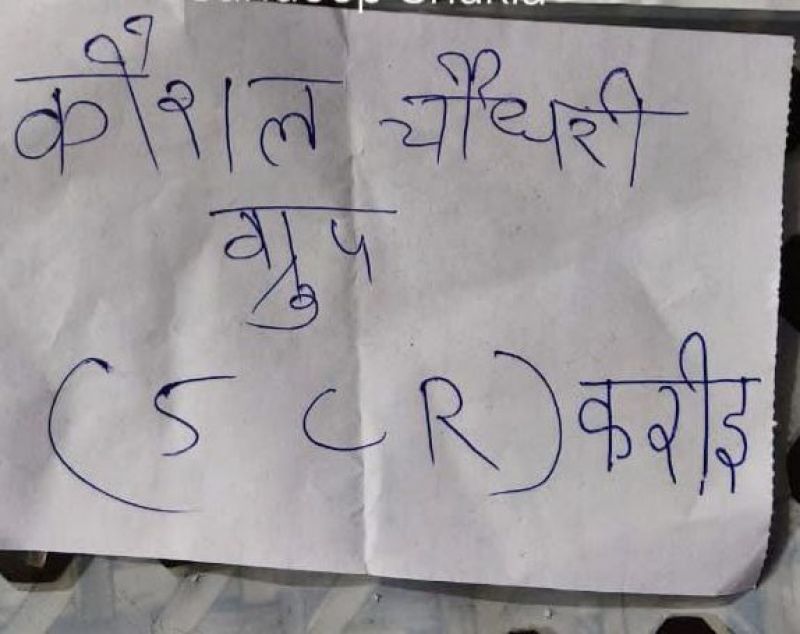 कौशल चौधरी
ग्रुप
(5 CR) करीड